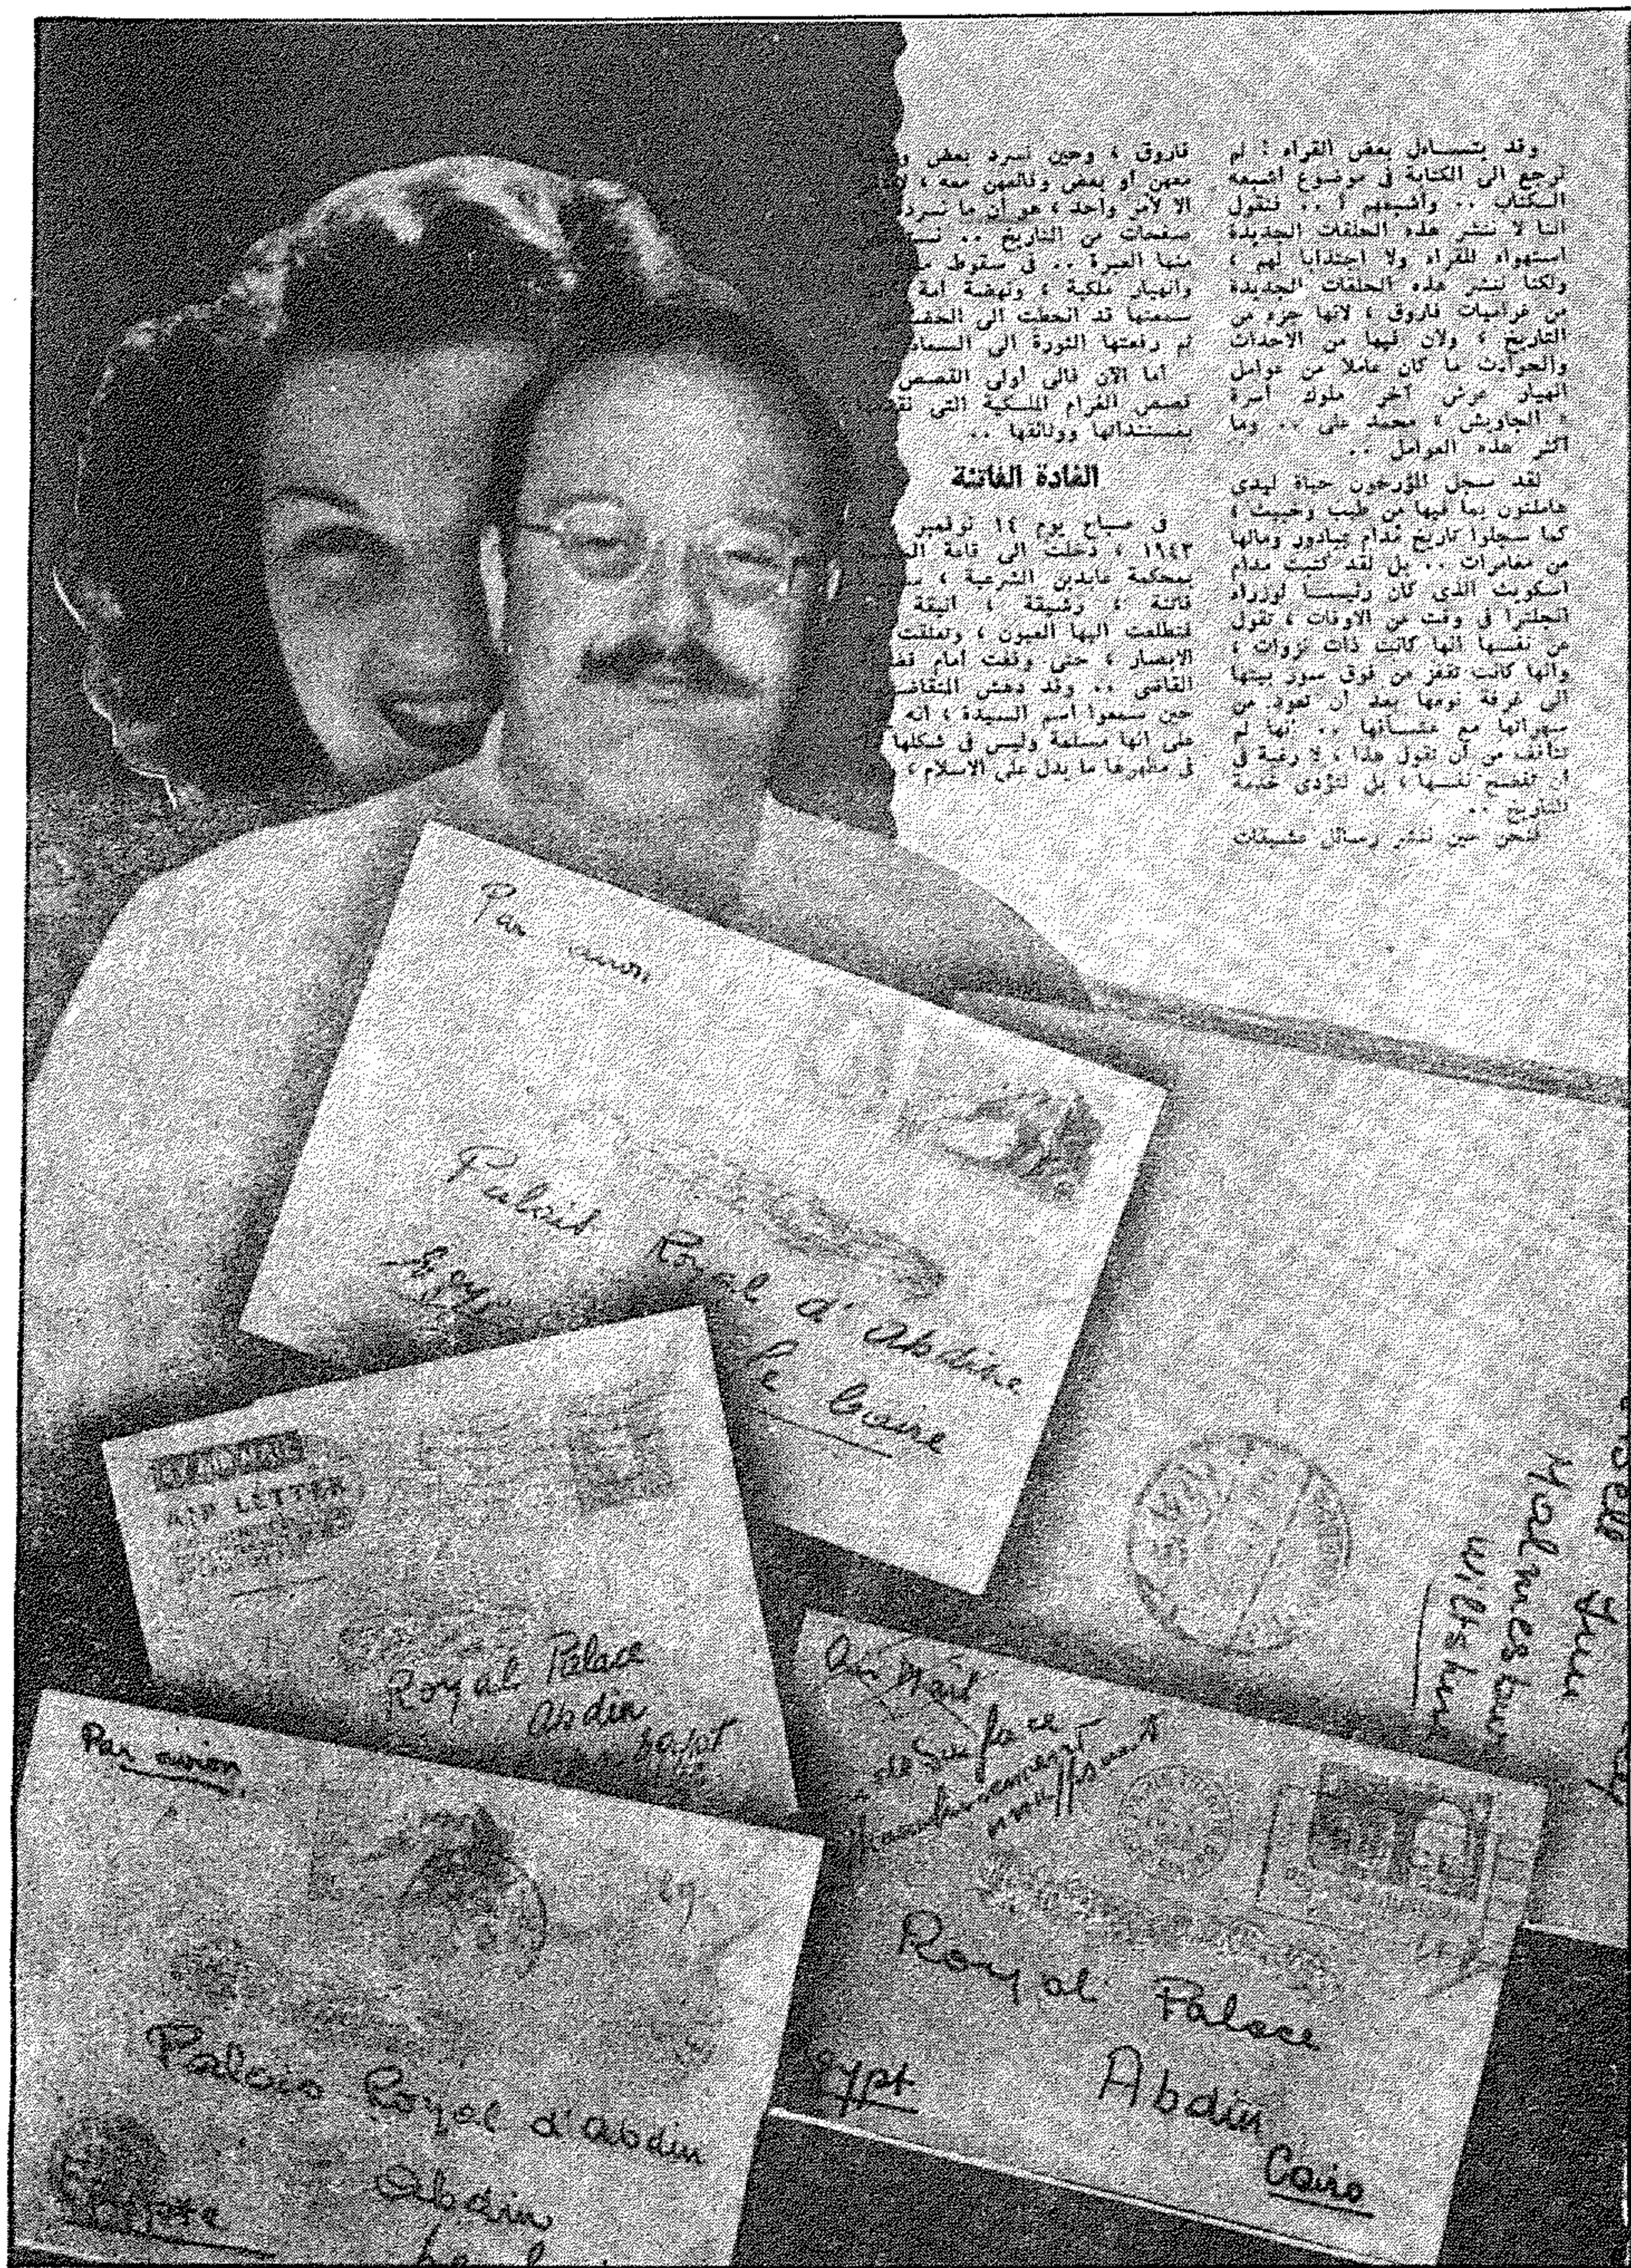 وقد يتساءل بعض القراء : لم
نرجع الى الكتابة في موضوع أشبعه
الكتاب .. وأشبعهم ! .. فنقول
اننا لا ننشر هذه الحلقات الجديدة
استهواء للقراء ولا اجتذابا لهم ،
ولكنا ننشر هذه الحلقات الجديدة
من غراميات فاروق ، لانها جزء من
التاريخ ، ولان فيها من الاحداث
والحوادث ما كان عاملا من عوامل
انهيار عرش آخر ملوك أسرة
« الجاويش » محمد على .. وما
أكثر هذه العوامل ..
لقد سجل المؤرخون حياة ليدى
هاملتون بما فيها من طيب وخبيث ،
كما سجلوا تاريخ مدام بمبادور ومالها
من مغامرات .. بل لقد كتبت مدام
اسكويث الذى كان رئيسا لوزراء
انجلترا في وقت من الاوقات ، تقول
عن نفسها انها كانت ذات نزوات ،
وانها كانت تقفز من فوق سور بيتها
الى غرفة نومها بعد ان تعود من
سهراتها مع عشاقها .. انها لم
تتأفف من أن تقول هذا ، لا رغبة في
ان تفضح نفسها ، بل لتؤدى خدمة
للتاريخ ..
فنحن حين ننشر رسائل عشيقات
فاروق ، وحين نسرد بعض
معهن أو بعض وقائعهن معه ،
الا لأمر واحد ، هو أن ما نسرده
صفحات من التاريخ ..
منها العبرة .. في سقوط
وانهيار ملكية ، ونهضة أمة
سمعتها قد انحطت الى
ثم رفعتها الثورة الى
أما الآن فالى أولى القصص
قصص الغرام الملكية التى
بمستنداتها ووثائقها ..
الغادة الفاتنة
في صباح يوم ١٤ نوفمبر
١٩٤٣ ، دخلت الى قاعة
بمحكمة عابدين الشرعية ،
فاتنة ، رشيقة ، أنيقة
فتطلعت اليها العيون ، وتعلقت
الابصار ، حتى وقفت أمام
القاضى .. وقد دهش
حين سمعوا اسم السيدة ،
على انها مسلمة وليس في شكلها
في مظهرها ما يدل على الاسلام ،
Par avion
Palais Royal d'Abdine
le Caire
BY AIR MAIL
AIR LETTER
Royal Palace
Abdin
Egypt
Inn
Malmesbury
Wiltshire
Air Mail
Royal Palace
Abdin
Cairo
Par avion
Palais Royal d'Abdin
Abdin
Egypte